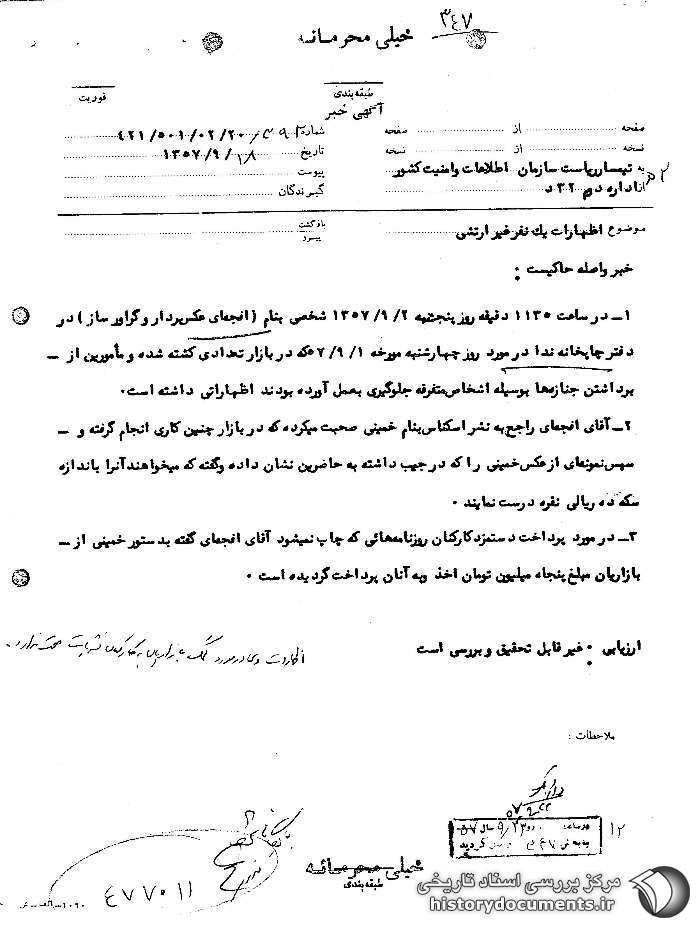 ۳۴۷
خیلی محرمانه
طبقه‌بندی
فوریت
آگهی خبر
صفحه از صفحه
شماره ۴۲۱/۵۰۱/۰۲/۲۰
نسخه از نسخه
تاریخ ۱۳۵۷/۹/۱۸
به تیمسار ریاست سازمان اطلاعات وامنیت کشور
پیوست
از اداره دوم ۳۲ د
گیرندگان
موضوع اظهارات یك نفر غیر ارتشی
بازگشت
پیرو
خبر واصله حاکیست :
۱ـ در ساعت ۱۱۳۵ دقیقه روز پنجشنبه ۱۳۵۷/۹/۲ شخصی بنام ( افجه‌ای عکس‌بردار و گراور ساز ) در
دفتر چاپخانه ندا در مورد روز چهارشنبه مورخه ۵۷/۹/۱ که در بازار تعدادی کشته شده و مأمورین از ـ
برداشتن جنازه‌ها بوسیله اشخاص متفرقه جلوگیری بعمل آورده بودند اظهاراتی داشته است.
۲ـ آقای افجه‌ای راجع به نشر اسکناس بنام خمینی صحبت میکرده که در بازار چنین کاری انجام گرفته و ـ
سپس نمونه‌ای از عکس خمینی را که در جیب داشته به حاضرین نشان داده و گفته که میخواهند آنرا باندازه
سکه ده ریالی نقره درست نمایند .
۳ـ در مورد پرداخت دستمزد کارکنان روزنامه‌هائی که چاپ نمیشود آقای افجه‌ای گفته بدستور خمینی از ـ
بازاریان مبلغ پنجاه میلیون تومان اخذ وبه آنان پرداخت گردیده است .
ارزیابی : غیر قابل تحقیق و بررسی است
اظهارات وی در مورد کمک بازاریان به کارکنان نشریات صحت ندارد.
ملاحظات :
۱۲
خیلی محرمانه
طبقه‌بندی
۴۷۷۰۱۱
مرکز بررسی اسناد تاریخی
historydocuments.ir